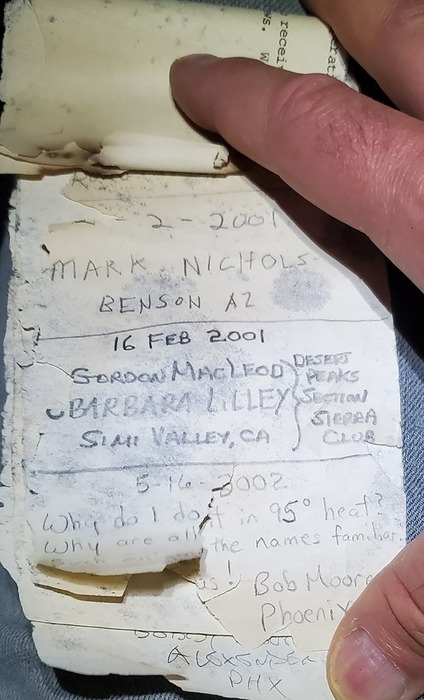 recei
s. W
- - 2 - 2001
MARK NICHOLS
BENSON AZ
16 FEB 2001
GORDON MACLEOD
BARBARA LILLEY
SIMI VALLEY, CA
DESERT
PEAKS
SECTION
SIERRA
CLUB
5-16-2002
Why do I do it in 95° heat?
Why are all the names familiar
us!
Bob Moore
Phoenix
PHX